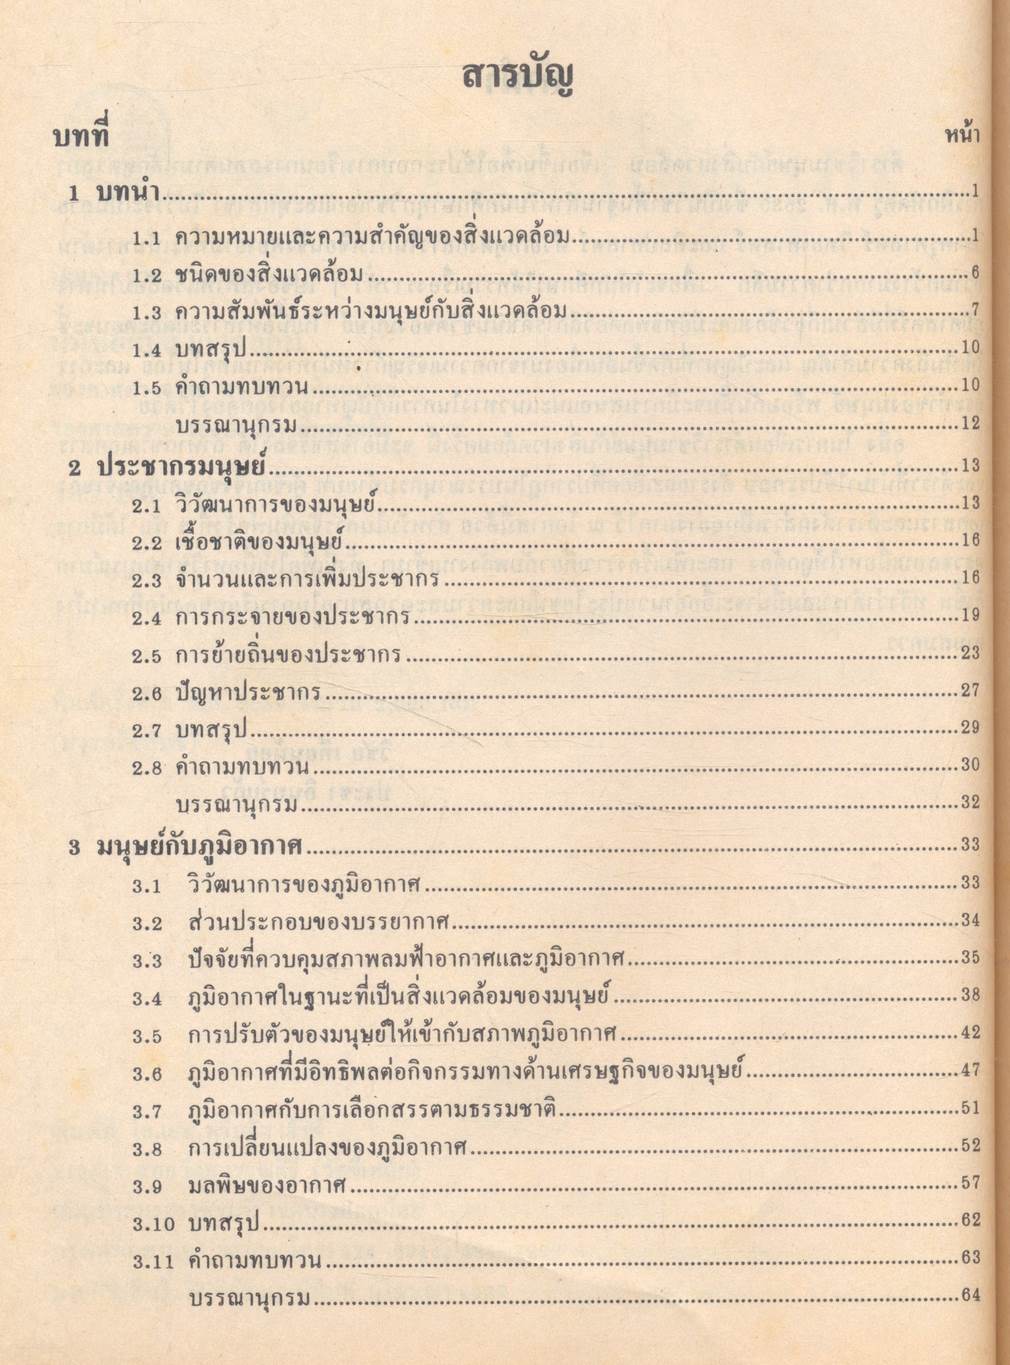 สารบัญ
บทที่ หน้า
1 บทนำ 1
1.1 ความหมายและความสำคัญของสิ่งแวดล้อม 1
1.2 ชนิดของสิ่งแวดล้อม 6
1.3 ความสัมพันธ์ระหว่างมนุษย์กับสิ่งแวดล้อม 7
1.4 บทสรุป 10
1.5 คำถามทบทวน 10
บรรณานุกรม 12
2 ประชากรมนุษย์ 13
2.1 วิวัฒนาการของมนุษย์ 13
2.2 เชื้อชาติของมนุษย์ 16
2.3 จำนวนและการเพิ่มประชากร 16
2.4 การกระจายของประชากร 19
2.5 การย้ายถิ่นของประชากร 23
2.6 ปัญหาประชากร 27
2.7 บทสรุป 29
2.8 คำถามทบทวน 30
บรรณานุกรม 32
3 มนุษย์กับภูมิอากาศ 33
3.1 วิวัฒนาการของภูมิอากาศ 33
3.2 ส่วนประกอบของบรรยากาศ 34
3.3 ปัจจัยที่ควบคุมสภาพลมฟ้าอากาศและภูมิอากาศ 35
3.4 ภูมิอากาศในฐานะที่เป็นสิ่งแวดล้อมของมนุษย์ 38
3.5 การปรับตัวของมนุษย์ให้เข้ากับสภาพภูมิอากาศ 42
3.6 ภูมิอากาศที่มีอิทธิพลต่อกิจกรรมทางด้านเศรษฐกิจของมนุษย์ 47
3.7 ภูมิอากาศกับการเลือกสรรตามธรรมชาติ 51
3.8 การเปลี่ยนแปลงของภูมิอากาศ 52
3.9 มลพิษของอากาศ 57
3.10 บทสรุป 62
3.11 คำถามทบทวน 63
บรรณานุกรม 64